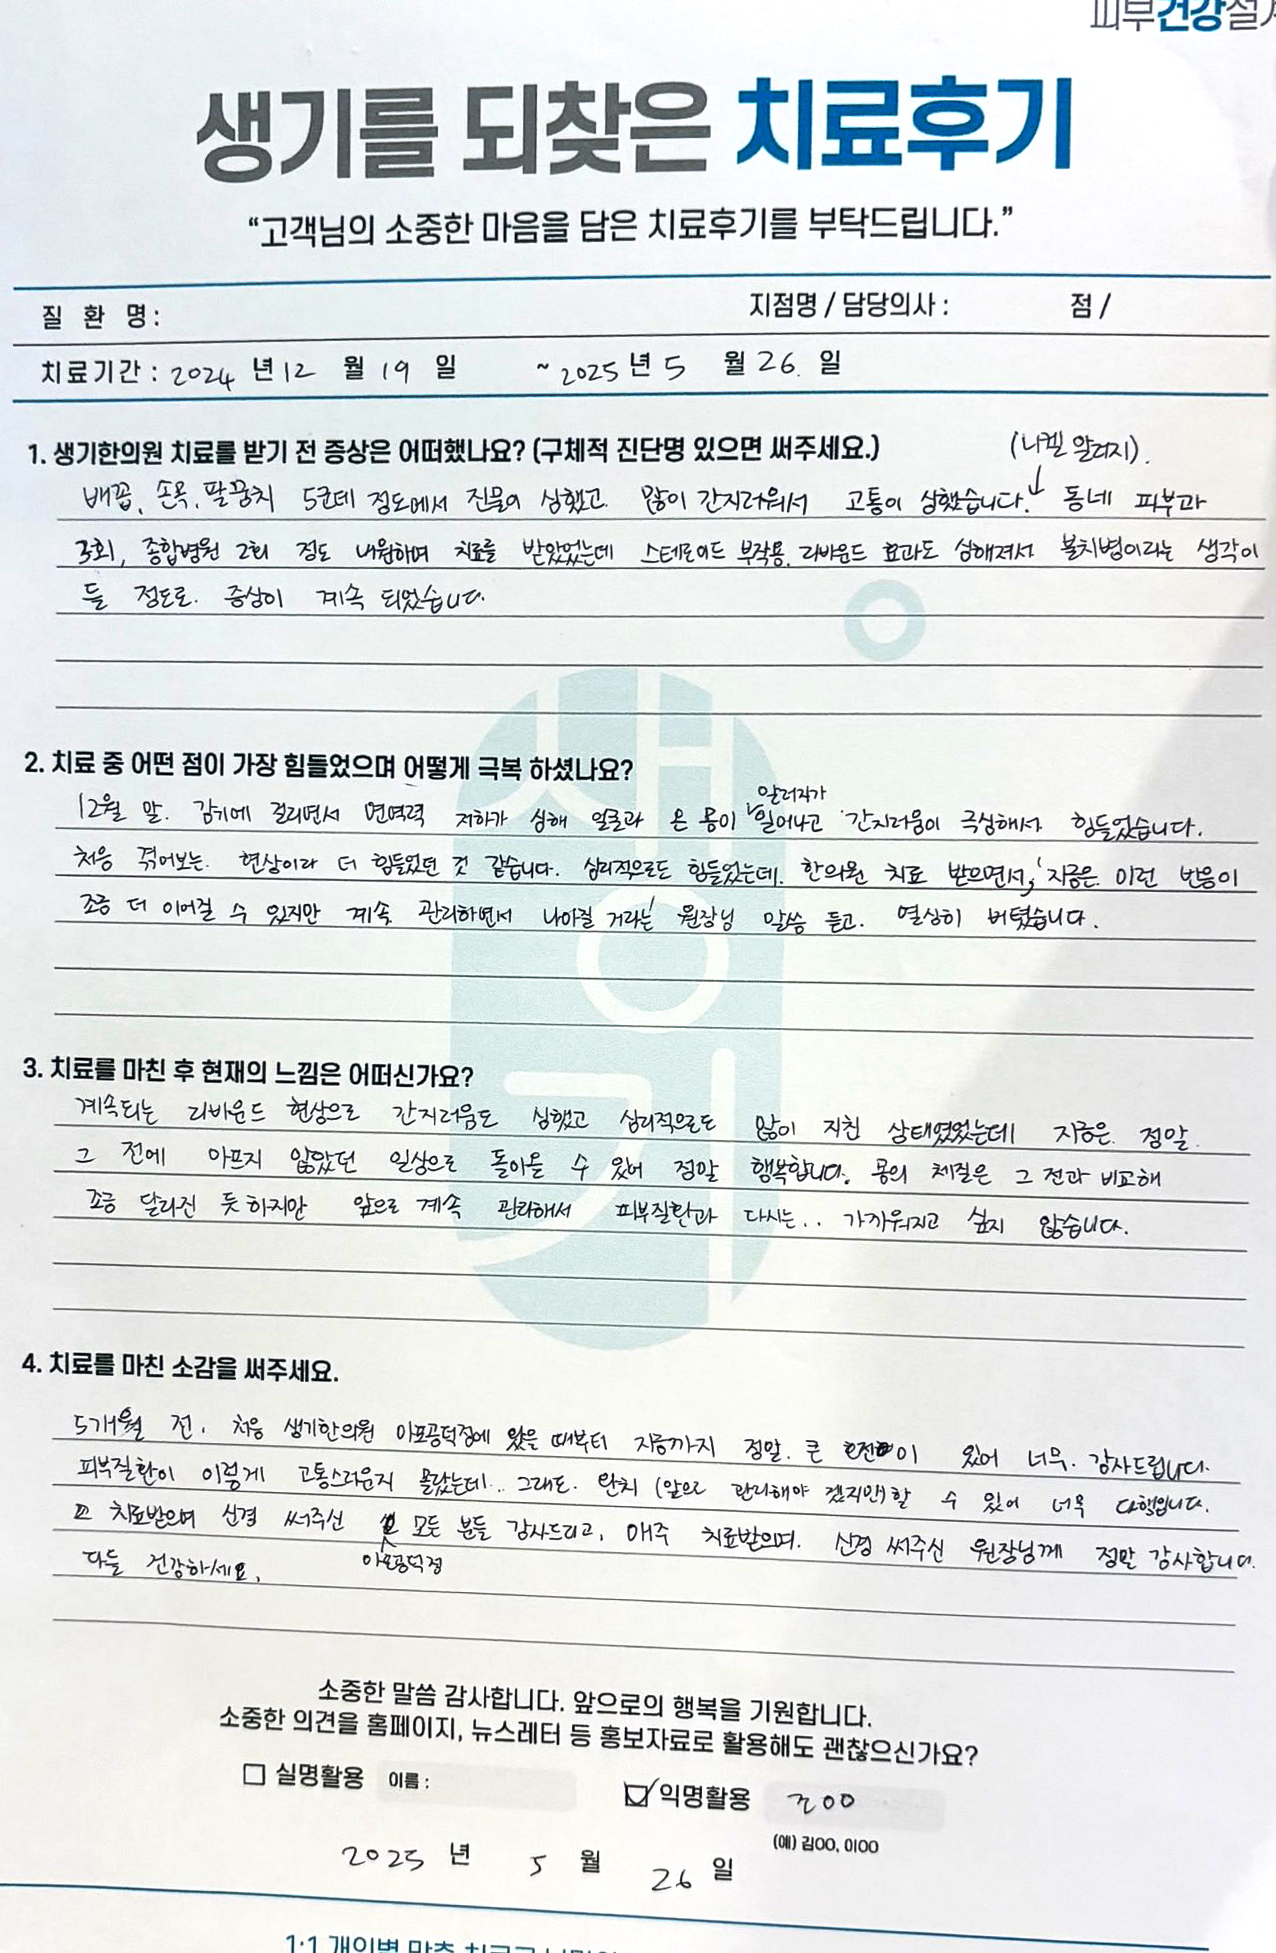 피부건강설계
생기를 되찾은 치료후기
“고객님의 소중한 마음을 담은 치료후기를 부탁드립니다.”
질 환 명 :
지점명 / 담당의사 : 점 /
치료기간 : 2024 년 12 월 19 일 ~ 2025 년 5 월 26. 일
1. 생기한의원 치료를 받기 전 증상은 어떠했나요? (구체적 진단명 있으면 써주세요.)
(니켈 알러지).
배꼽, 손목, 팔꿈치 5군데 정도에서 진물이 심했고. 많이 간지러워서 고통이 심했습니다. 동네 피부과
3회, 종합병원 2회 정도 내원하며 치료를 받았었는데 스테로이드 부작용. 리바운드 효과도 심해져서 불치병이라는 생각이
들 정도로. 증상이 계속 되었습니다.
2. 치료 중 어떤 점이 가장 힘들었으며 어떻게 극복 하셨나요?
알러지가
12월 말. 감기에 걸리면서 면역력 저하가 심해 얼굴과 온 몸이 일어나고 간지러움이 극심해서 힘들었습니다.
처음 겪어보는. 현상이라 더 힘들었던 것 같습니다. 심리적으로도 힘들었는데. 한의원 치료 받으면서, '지금은 이런 반응이
조금 더 이어질 수 있지만 계속 관리하면서 나아질 거라는' 원장님 말씀 듣고. 열심히 버텼습니다.
3. 치료를 마친 후 현재의 느낌은 어떠신가요?
계속되는 리바운드 현상으로 간지러움도 심했고 심리적으로도 많이 지친 상태였었는데 지금은 정말
그 전에 아프지 않았던 일상으로 돌아올 수 있어 정말 행복합니다. 몸의 체질은 그 전과 비교해
조금 달라진 듯 하지만 앞으로 계속 관리해서 피부질환과 다시는.. 가까워지고 싶지 않습니다.
4. 치료를 마친 소감을 써주세요.
5개월 전. 처음 생기한의원 아포공덕점에 왔을 때부터 지금까지 정말. 큰 호전이 있어 너무. 감사드립니다.
피부질환이 이렇게 고통스러운지 몰랐는데.. 그래도. 완치 (앞으로 관리해야 겠지만)할 수 있어 너무 다행입니다.
치료받으며 신경 써주신 모든 분들 감사드리고, 매주 치료받으며. 신경 써주신 원장님께 정말 감사합니다.
아포공덕점
다들 건강하세요.
소중한 말씀 감사합니다. 앞으로의 행복을 기원합니다.
소중한 의견을 홈페이지, 뉴스레터 등 홍보자료로 활용해도 괜찮으신가요?
실명활용 이름 :
익명활용 조00
(예) 김00, 이00
2025 년 5 월 26 일
1:1 개인별 맞춤 치료